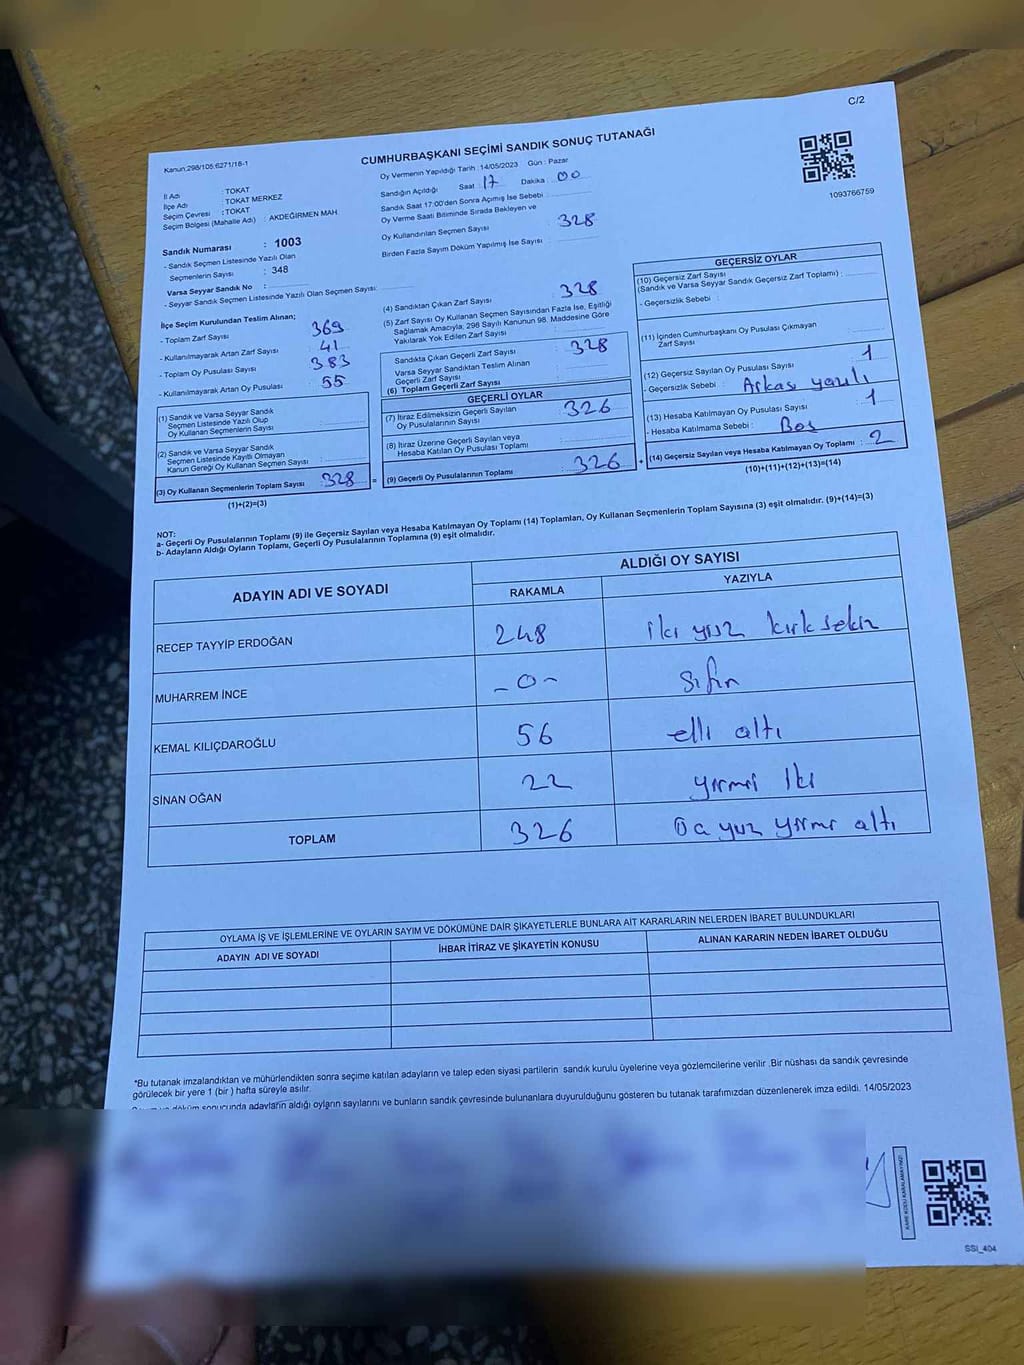 C/2
Kanun:298/105:6271/16-1
CUMHURBAŞKANI SEÇİMİ SANDIK SONUÇ TUTANAĞI
Oy Vermenin Yapıldığı Tarih : 14/05/2023 Gün : Pazar
Sandığın Açıldığı Saat 17 Dakika : 00
Sandık Saat 17:00'den Sonra Açımış İse Sebebi :
Oy Verme Saati Bitiminde Sırada Bekleyen ve
Oy Kullandırılan Seçmen Sayısı 328
Birden Fazla Sayım Döküm Yapılmış İse Sayısı :
1093766759
İl Adı : TOKAT
İlçe Adı : TOKAT MERKEZ
Seçim Çevresi : TOKAT
Seçim Bölgesi (Mahalle Adı) : AKDEĞİRMEN MAH
Sandık Numarası : 1003
- Sandık Seçmen Listesinde Yazılı Olan
Seçmenlerin Sayısı : 348
Varsa Seyyar Sandık No :
- Seyyar Sandık Seçmen Listesinde Yazılı Olan Seçmen Sayısı:
İlçe Seçim Kurulundan Teslim Alınan;
- Toplam Zarf Sayısı : 369
- Kullanılmayarak Artan Zarf Sayısı : 41
- Toplam Oy Pusulası Sayısı : 383
- Kullanılmayarak Artan Oy Pusulası : 55
(1) Sandık ve Varsa Seyyar Sandık
Seçmen Listesinde Yazılı Olup
Oy Kullanan Seçmenlerin Sayısı
(2) Sandık ve Varsa Seyyar Sandık
Seçmen Listesinde Kayıtlı Olmayan
Kanun Gereği Oy Kullanan Seçmen Sayısı :
(3) Oy Kullanan Seçmenlerin Toplam Sayısı : 328
(1)+(2)=(3)
(4) Sandıktan Çıkan Zarf Sayısı : 328
(5) Zarf Sayısı Oy Kullanan Seçmen Sayısından Fazla İse, Eşitliği
Sağlamak Amacıyla, 298 Sayılı Kanunun 98. Maddesine Göre
Yakılarak Yok Edilen Zarf Sayısı :
Sandıkta Çıkan Geçerli Zarf Sayısı : 328
Varsa Seyyar Sandıktan Teslim Alınan
Geçerli Zarf Sayısı
(6) Toplam Geçerli Zarf Sayısı
GEÇERLİ OYLAR
(7) İtiraz Edilmeksizin Geçerli Sayılan
Oy Pusulalarının Sayısı : 326
(8) İtiraz Üzerine Geçerli Sayılan veya
Hesaba Katılan Oy Pusulası Toplamı
=
(9) Geçerli Oy Pusulalarının Toplamı : 326
+
GEÇERSİZ OYLAR
(10) Geçersiz Zarf Sayısı
(Sandık ve Varsa Seyyar Sandık Geçersiz Zarf Toplamı) :
- Geçersizlik Sebebi :
(11) İçinden Cumhurbaşkanı Oy Pusulası Çıkmayan
Zarf Sayısı
(12) Geçersiz Sayılan Oy Pusulası Sayısı : 1
- Geçersizlik Sebebi : Arkası yazılı
(13) Hesaba Katılmayan Oy Pusulası Sayısı : 1
- Hesaba Katılmama Sebebi : Boş
(14) Geçersiz Sayılan veya Hesaba Katılmayan Oy Toplamı : 2
(10)+(11)+(12)+(13)=(14)
NOT:
a- Geçerli Oy Pusulalarının Toplamı (9) ile Geçersiz Sayılan veya Hesaba Katılmayan Oy Toplamı (14) Toplamları, Oy Kullanan Seçmenlerin Toplam Sayısına (3) eşit olmalıdır. (9)+(14)=(3)
b- Adayların Aldığı Oyların Toplamı, Geçerli Oy Pusulalarının Toplamına (9) eşit olmalıdır.
ADAYIN ADI VE SOYADI
ALDIĞI OY SAYISI
RAKAMLA YAZIYLA
RECEP TAYYİP ERDOĞAN 248 iki yüz kırk sekiz
MUHARREM İNCE -0- Sıfır
KEMAL KILIÇDAROĞLU 56 elli altı
SİNAN OĞAN 22 yirmi iki
TOPLAM 326 üç yüz yirmi altı
OYLAMA İŞ VE İŞLEMLERİNE VE OYLARIN SAYIM VE DÖKÜMÜNE DAİR ŞİKAYETLERLE BUNLARA AİT KARARLARIN NELERDEN İBARET BULUNDUKLARI
ADAYIN ADI VE SOYADI İHBAR İTİRAZ VE ŞİKAYETİN KONUSU ALINAN KARARIN NEDEN İBARET OLDUĞU
*Bu tutanak imzalandıktan ve mühürlendikten sonra seçime katılan adayların ve talep eden siyasi partilerin sandık kurulu üyelerine veya gözlemcilerine verilir .Bir nüshası da sandık çevresinde
görülecek bir yere 1 (bir ) hafta süreyle asılır.
döküm sonucunda adayların aldığı oyların sayılarını ve bunların sandık çevresinde bulunanlara duyurulduğunu gösteren bu tutanak tarafımızdan düzenlenerek imza edildi. 14/05/2023
KARE KODU KARALAMAYINIZ!
SSI_404